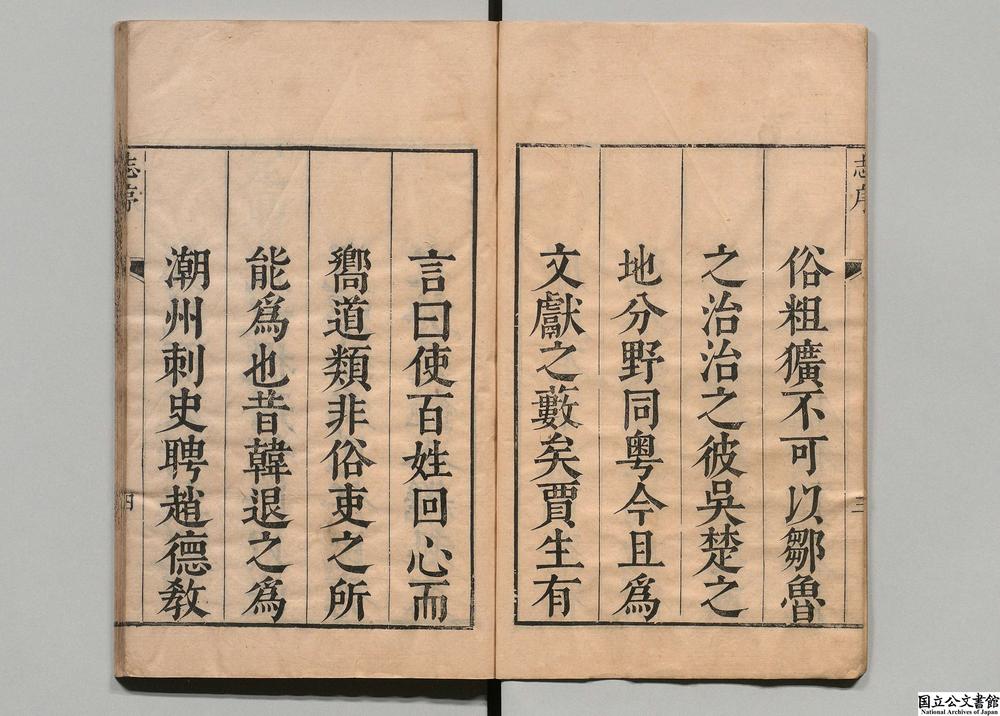 志序
三
俗粗獷不可以鄒魯
之治治之彼吳楚之
地分野同粤今且為
文獻之藪矣賈生有
言曰使百姓回心而
嚮道類非俗吏之所
能為也昔韓退之為
潮州刺史聘趙德教
志序
四
国立公文書館
National Archives of Japan